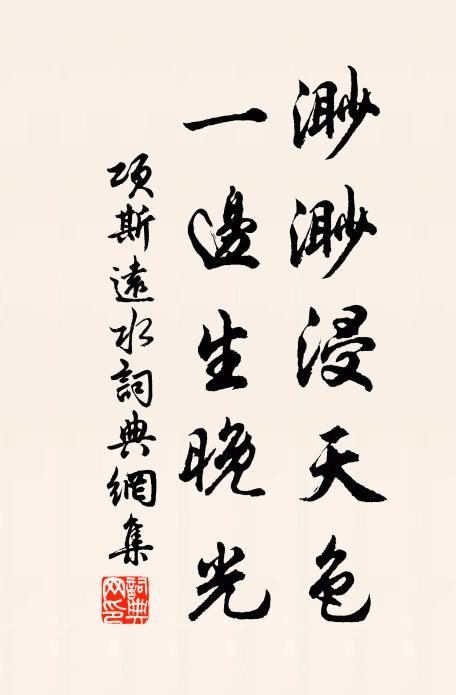 渺渺浸天色
一邊生晚光
項斯遠水詞典網集
詞典
网印